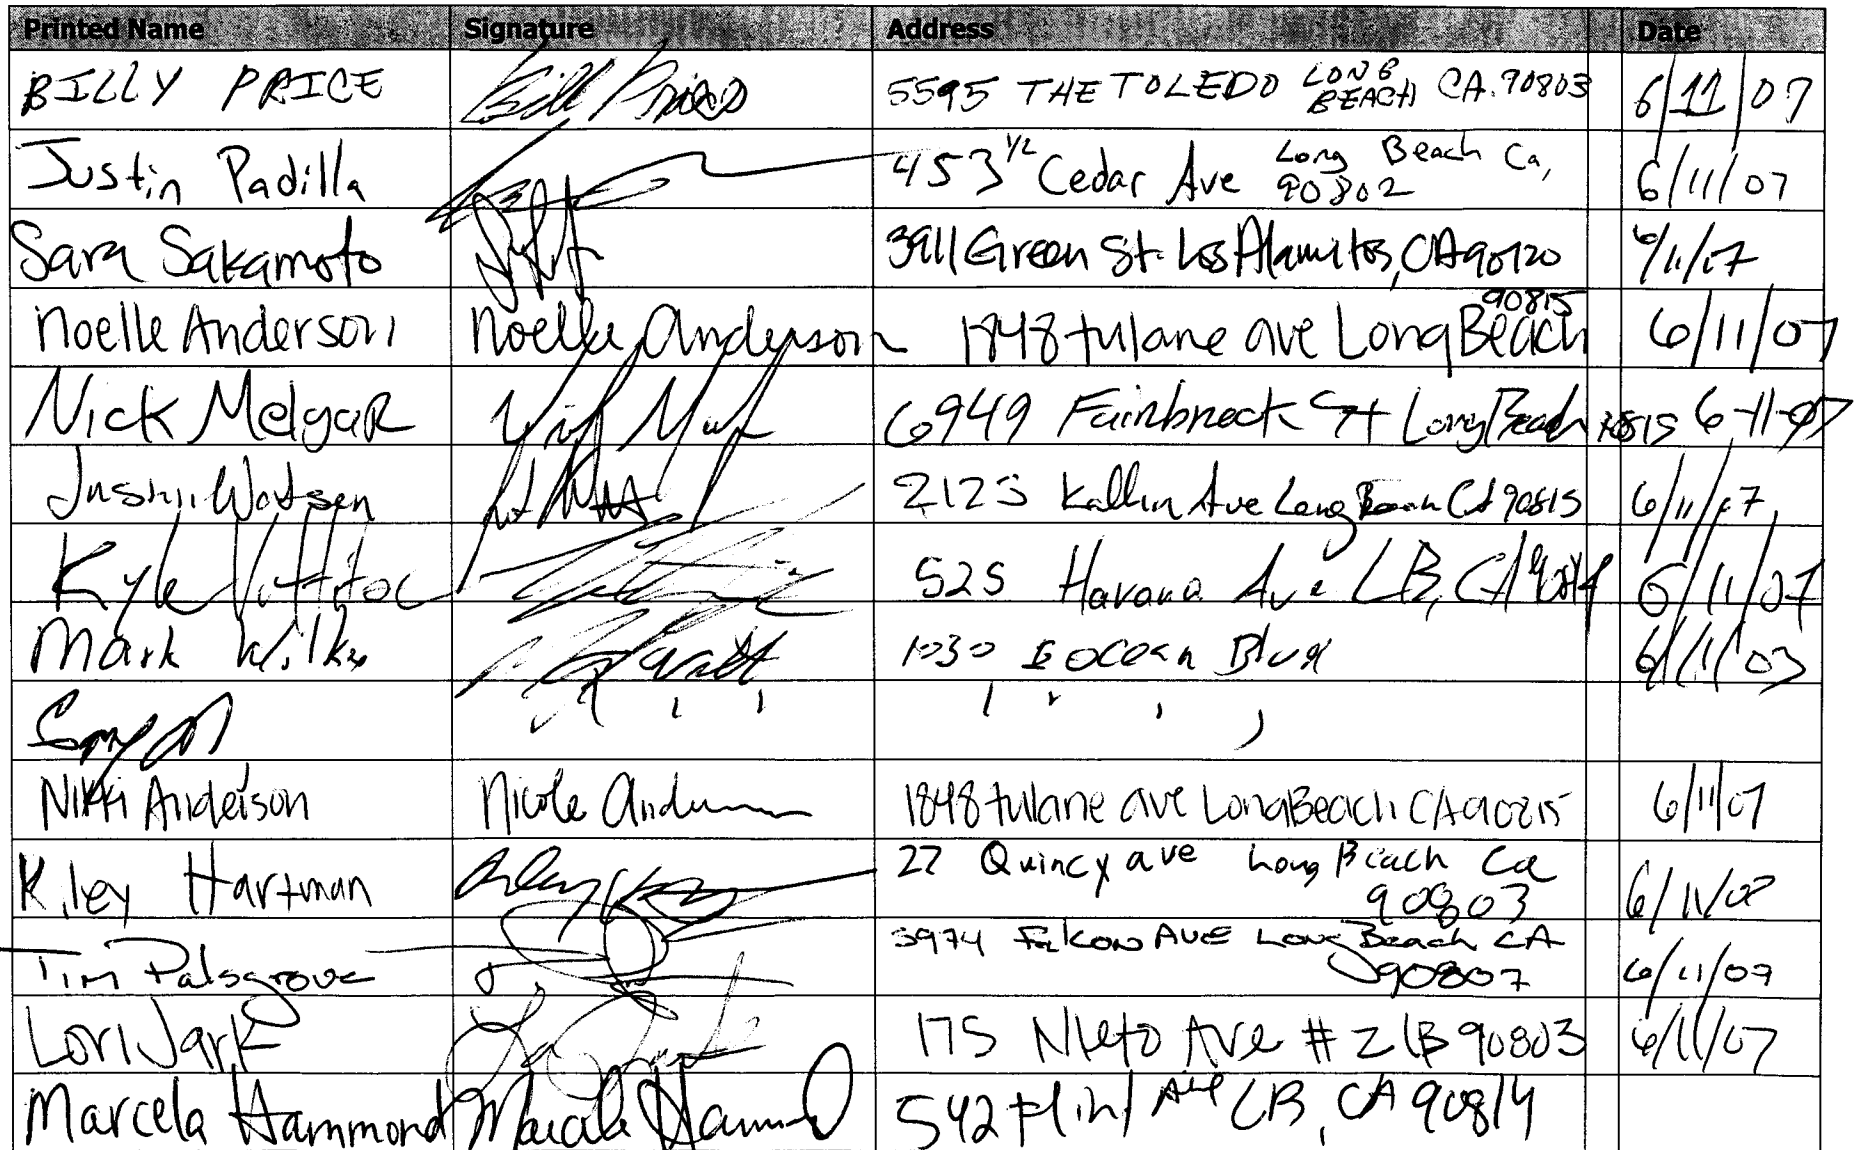 Printed Name Signature Address Date
BILLY PRICE Bill Price 5595 THE TOLEDO LONG BEACH CA. 90803 6/11/07
Justin Padilla 453 1/2 Cedar Ave Long Beach Ca, 90802 6/11/07
Sara Sakamoto 3911 Green St. Los Alamitos, CA 90720 6/11/07
Noelle Anderson Noelle Anderson 1848 tulane ave Long Beach 90815 6/11/07
Nick Melgar 6949 St Long Beach 90815 6-11-07
Watson 2125 Kallin Ave Long Beach CA 90815 6/11/07
Kyle 525 Havana Ave LB, CA 90814 6/11/07
Mark 1030 E Ocean Blvd 6/11/03
Nikki Anderson Nicole Anderson 1848 tulane ave Long Beach CA 90815 6/11/07
Kiley Hartman 27 Quincy ave Long Beach Ca 90803 6/11/07
Tim Palsgrove 3974 Falcon AVE Long Beach CA 90807 6/11/07
Lori 175 Nieto Ave # 2 LB 90803 6/11/07
Marcela Hammond Marcela Hammond 542 Flint Ave LB, CA 90814